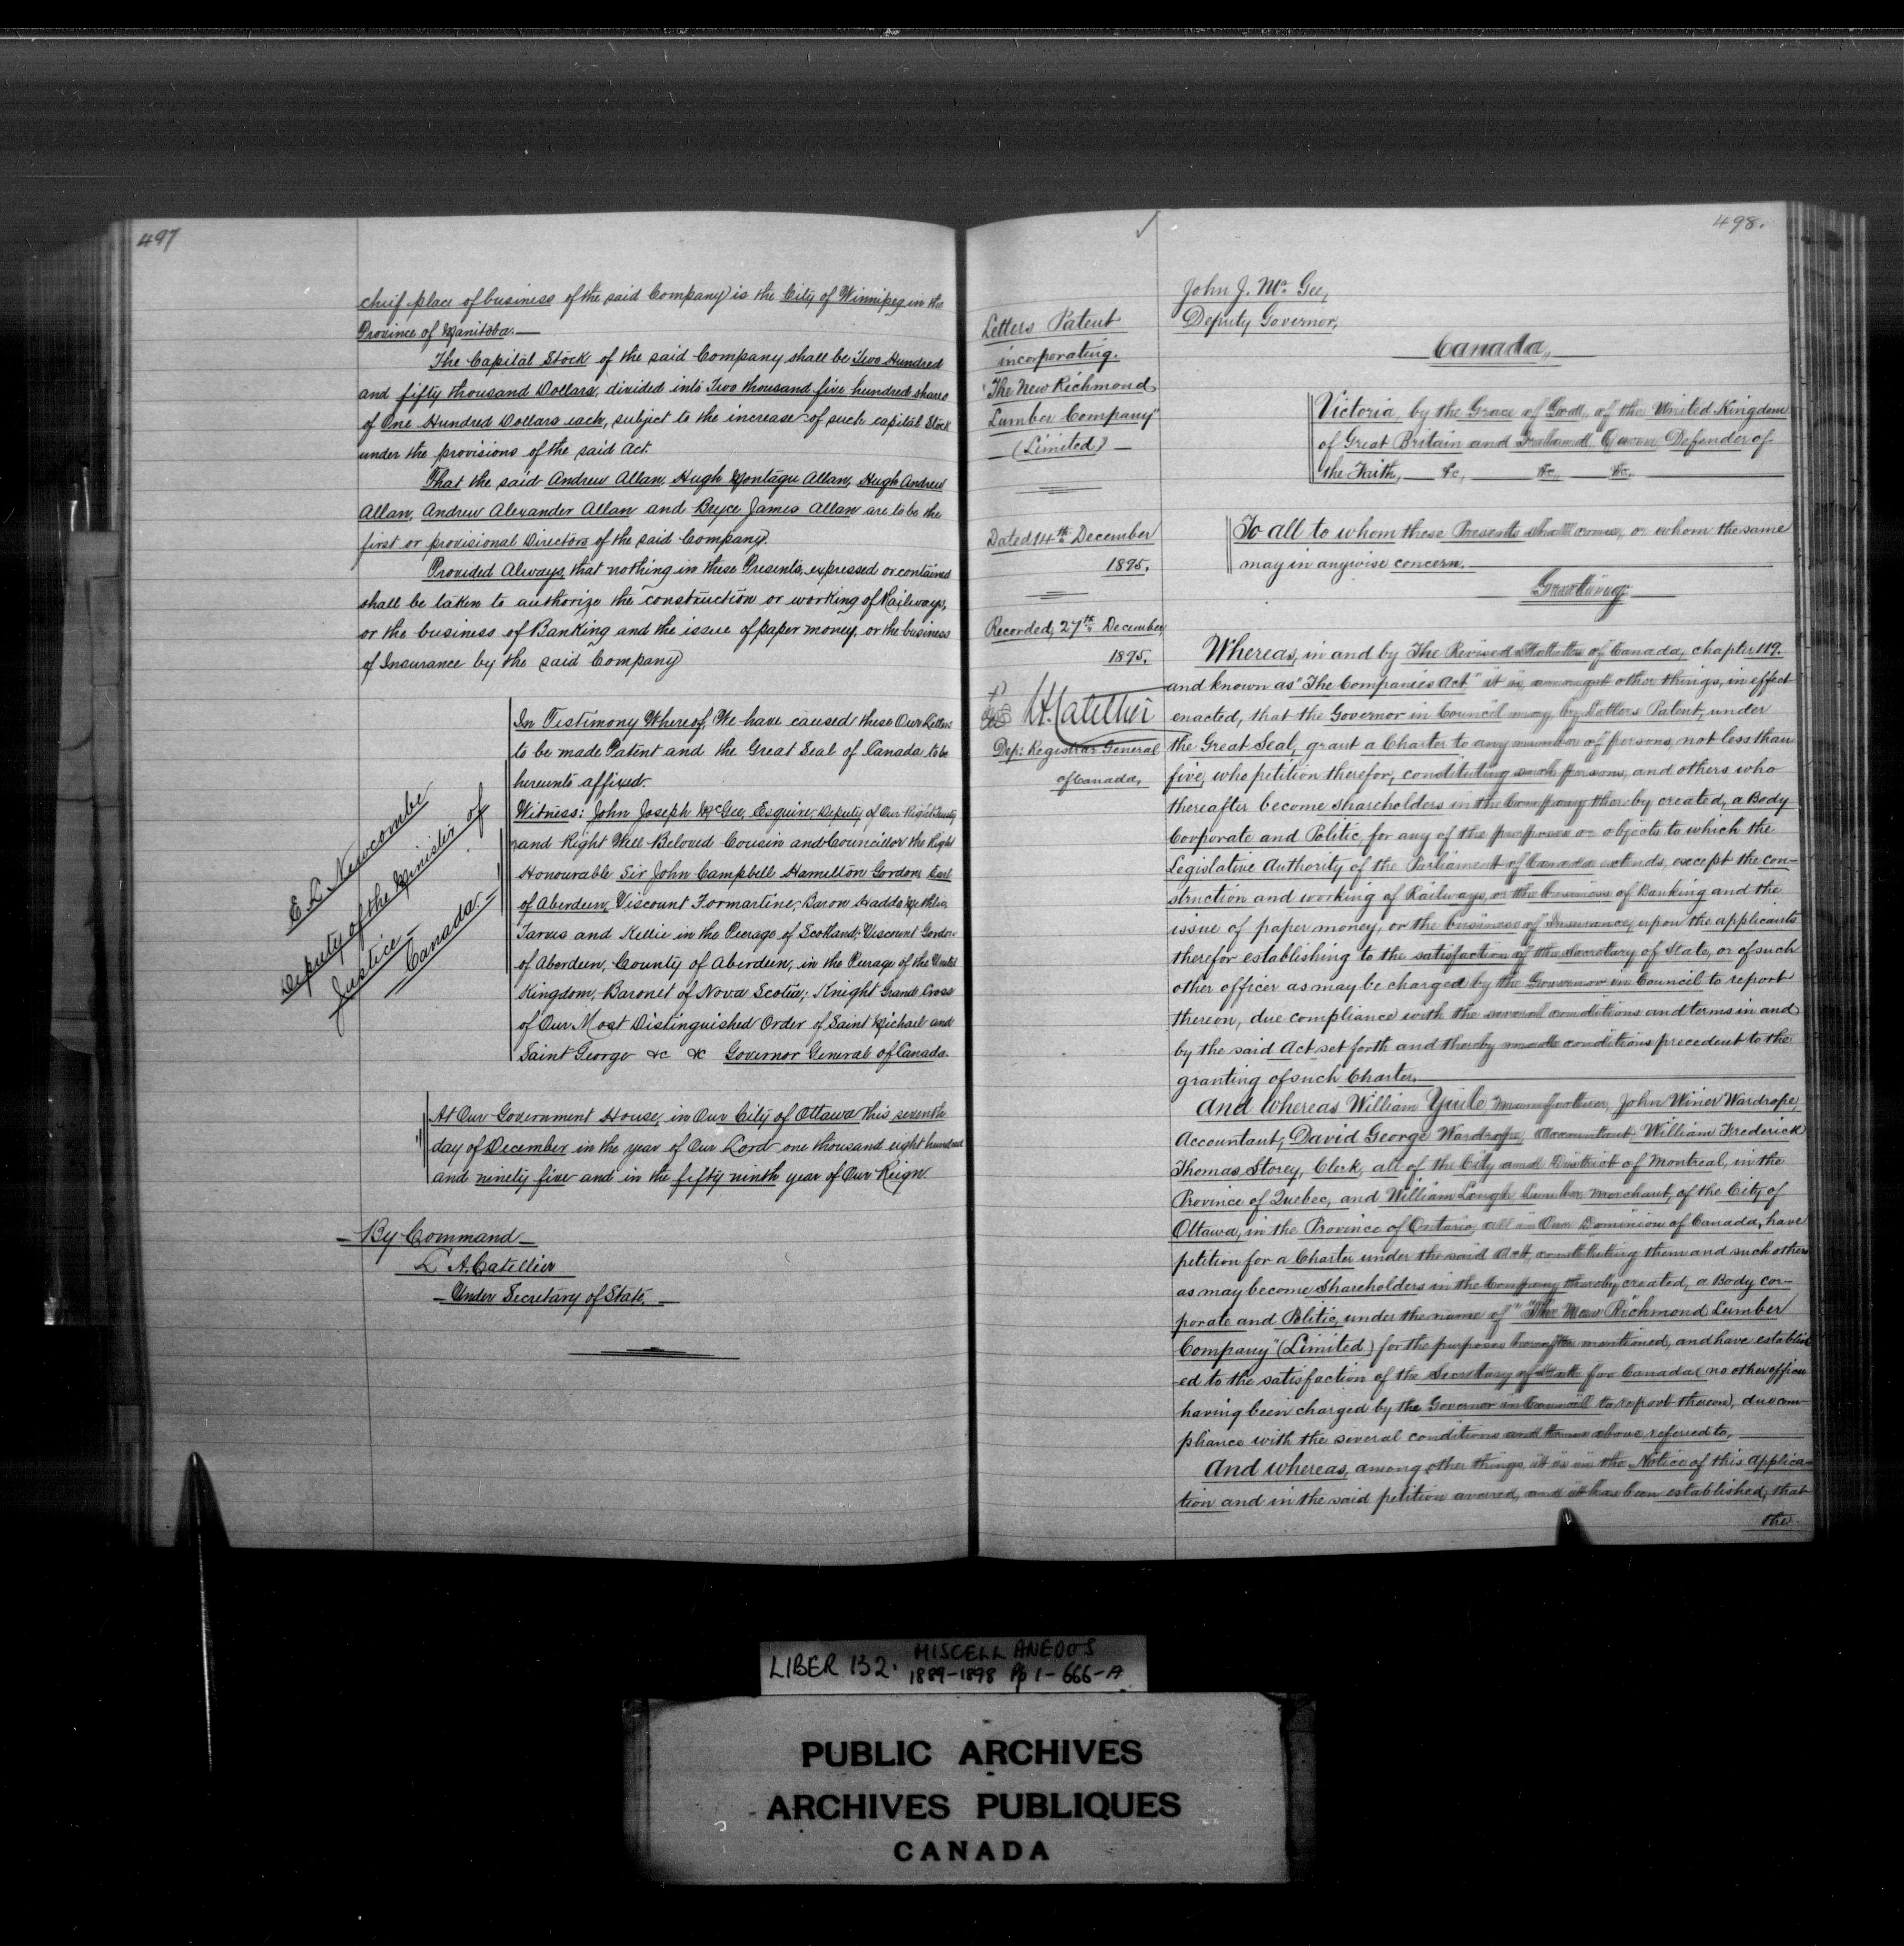 497
chief place of business of the said Company) is the City of Winnipeg in the
Province of Manitoba.
The Capital Stock of the said Company shall be Two Hundred
and fifty thousand Dollars, divided into Two thousand five hundred shares
of One Hundred Dollars each, subject to the increase of such capital Stock
under the provisions of the said Act.
That the said Andrew Allan, Hugh Montagu Allan, Hugh Andrew
Allan, Andrew Alexander Allan and Bryce James Allan are to be the
first or provisional Directors of the said Company.
Provided Always, that nothing in these Presents, expressed or contained
shall be taken to authorize the construction or working of Railways,
or the business of Banking and the issue of paper money, or the business
of Insurance by the said Company
In Testimony Whereof, We have caused these Our Letters
to be made Patent and the Great Seal of Canada to be
hereunto affixed.
Witness: John Joseph McGee, Esquire, Deputy of Our Right Trusty
and Right Well-Beloved Cousin and Councillor the Right
Honourable Sir John Campbell Hamilton Gordon, Earl
of Aberdeen, Viscount Formartine, Baron Haddo, Methlic,
Tarves and Kellie in the Peerage of Scotland; Viscount Gordon
of Aberdeen, County of Aberdeen, in the Peerage of the United
Kingdom; Baronet of Nova Scotia; Knight Grand Cross
of Our Most Distinguished Order of Saint Michael and
Saint George &c &c Governor General of Canada.
E. L. Newcombe
Deputy of the Minister of
Justice
Canada
At Our Government House, in Our City of Ottawa this seventh
day of December in the year of Our Lord one thousand eight hundred
and ninety five and in the fifty ninth year of Our Reign.
By Command
L. A. Catellier
Under Secretary of State.
498.
Letters Patent
incorporating.
"The New Richmond
Lumber Company"
(Limited)
Dated 14th December
1895.
Recorded, 27th December
1895.
Catellier
Dep: Registrar General
of Canada,
John J. Mc Gee,
Deputy Governor,
Canada,
Victoria, by the Grace of God, of the United Kingdom
of Great Britain and Ireland, Queen Defender of
the Faith, &c, &c, &c.
To all to whom these Presents shall come, or whom the same
may in anywise concern.
Greeting:
Whereas, in and by The Revised Statutes of Canada, chapter 119.
and known as "The Companies Act" it is, amongst other things, in effect
enacted, that the Governor in Council may, by Letters Patent, under
the Great Seal, grant a Charter to any number of persons, not less than
five, who petition therefor, constituting such persons, and others who
thereafter become shareholders in the Company thereby created, a Body
Corporate and Politic, for any of the purposes or objects to which the
Legislative Authority of the Parliament of Canada extends, except the con-
struction and working of Railways, or the business of Banking and the
issue of paper money, or the business of Insurance, upon the applicants
therefor establishing to the satisfaction of the Secretary of State, or of such
other officer as may be charged by the Governor in Council to report
thereon, due compliance with the several conditions and terms in and
by the said Act set forth and thereby made conditions precedent to the
granting of such Charter.
And whereas William Yuile Manufacturer, John Winer Wardrope,
Accountant, David George Wardrope, Accountant, William Frederick
Thomas Storey, Clerk, all of the City and District of Montreal, in the
Province of Quebec, and William Lough, Lumber Merchant, of the City of
Ottawa, in the Province of Ontario, all in Our Dominion of Canada, have
petition for a Charter under the said Act, constituting them and such others
as may become shareholders in the Company thereby created, a Body cor-
porate and Politic, under the name of "The New Richmond Lumber
Company" (Limited) for the purposes hereafter mentioned, and have establish
-ed to the satisfaction of the Secretary of State for Canada (no other officer
having been charged by the Governor in Council to report thereon), due com-
pliance with the several conditions and terms above referred to.
And whereas, among other things, it is in the Notice of this applica-
tion and in the said petition averred, and it has been established, that
the
LIBER 132. MISCELLANEOUS
1889-1898 Pp 1-666-A
PUBLIC ARCHIVES
ARCHIVES PUBLIQUES
CANADA